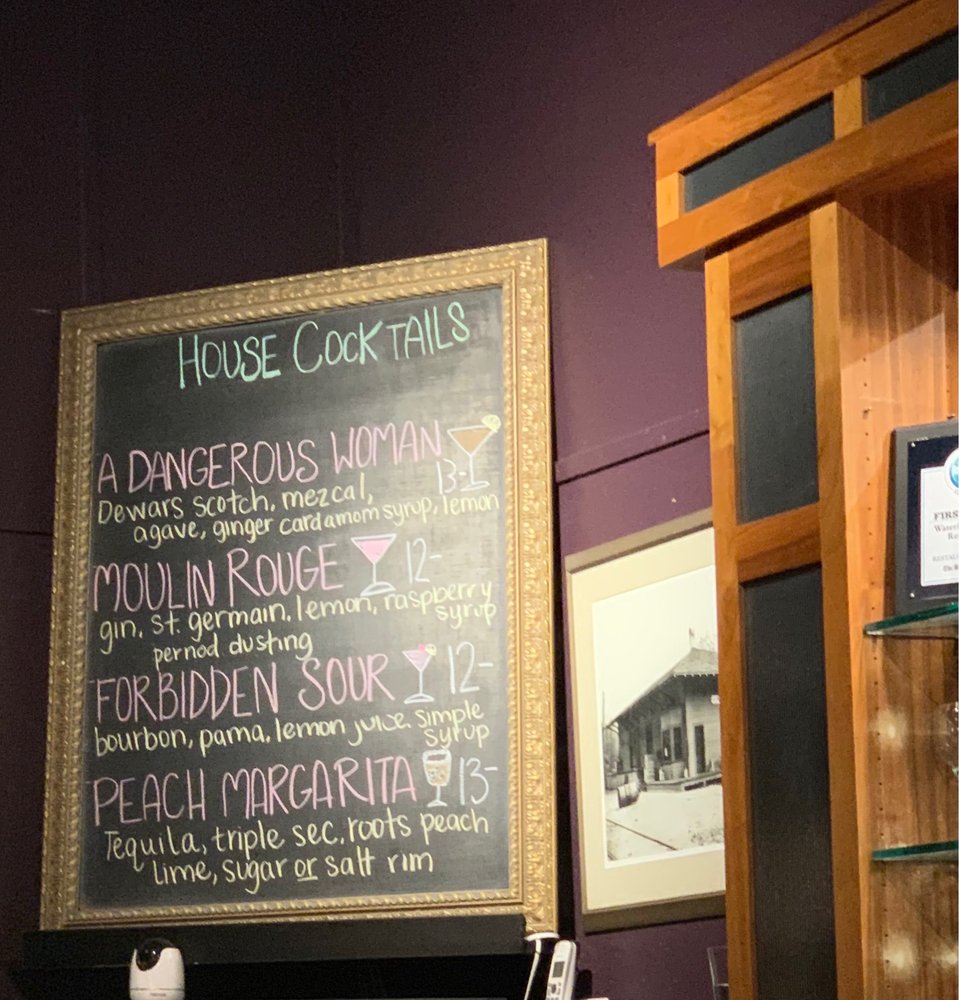 HOUSE COCKTAILS
A DANGEROUS WOMAN
13-
Dewars scotch, mezcal,
agave, ginger cardamom syrup, lemon
MOULIN ROUGE 12-
gin, st. germain, lemon, raspberry
syrup
pernod dusting
FORBIDDEN SOUR 12-
bourbon, pama, lemon juice, simple
syrup
PEACH MARGARITA 13-
Tequila, triple sec, roots peach
lime, sugar or salt rim
FIRS